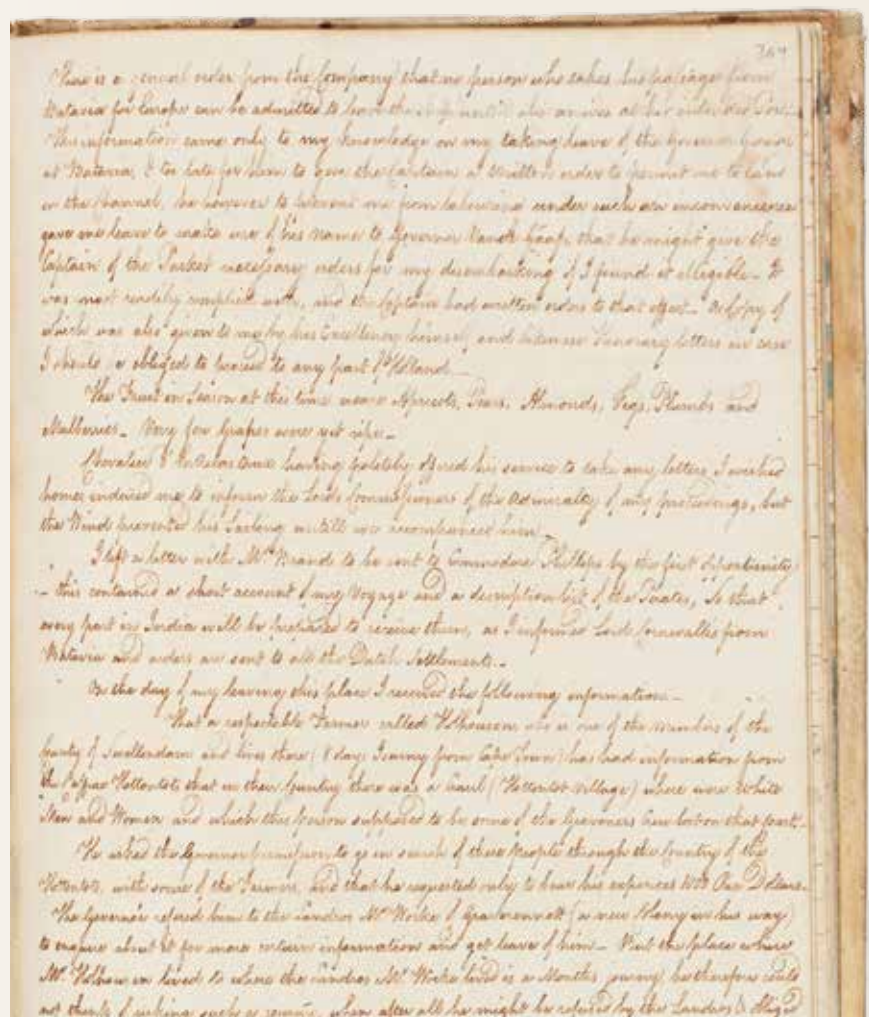 369
There is a general order from the Company that no person who takes his passage from
Batavia for Europe can be admitted to leave the ship until she arrives at her intended Port.
This information came only to my knowledge on my taking leave of the Governor General
at Batavia, & too late for him to give the Captain a written order to permit me to land
in the Channel, he however to prevent me from labouring under such an inconvenience
gave me leave to make use of his name to Governor Vander Graaf, that he might give the
Captain of the Packet necessary orders for my disembarking if I found it elligible_ It
was most readily complied with, and the Captain had written orders to that effect_ a Copy of
which was also given to me by his Excellency himself and likewise Honorary letters in case
I should be obliged to proceed to any part of Holland_
The Fruit in Season at this time were Apricots, Pears, Almonds, Figs, Plumbs and
Mulberries_ Very few Grapes were yet ripe_
Chevalier having politely offered his service to take any letters I wished
home, induced me to inform the Lords Commissioners of the Admiralty of my proceedings, but
the Winds prevented his Sailing untill we accompanied him_
I left a letter with Mr. Brandt to be sent to Commodore Phillips by the first opportunity
_ this contained a short account of my Voyage and a description list of the Pirates, So that
every part in India will be prepared to receive them, as I informed Lord Cornwallis from
Batavia and orders are sent to all the Dutch Settlements_
On the day of my leaving this place I received the following information_
That a respectable Farmer called Holhousen who is one of the members of the
County of Swellendam and lives there (8 days Journey from Cape Town) has had information from
the Caffree Hottentots that in their Country there was a Craul (Hottentot village) where were White
Men and Women and which this person supposed to be some of the Grosvenors Crew lost on that coast_
He asked the Governor permission to go in search of these people through the Country of the
Hottentots, with some of the Farmers, and that he requested only to have his expences Rix Dollars.
The Governor refered him to the Landros Mr. Worke of (a new Colony in his way)
to enquire about it for more certain information and get leave of him_ But the place where
Mr. Holhousen lived to where the Landros Mr. Worke lived is a Months journey, he therefore could
not think of making such a journey, when after all he might be refused by the Landros & obliged